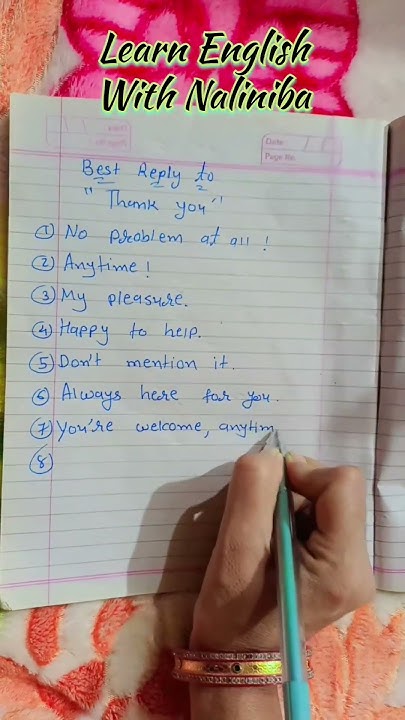 Learn English
With Naliniba
Date
Page No.
Best Reply to
"Thank you"
① No problem at all !
② Anytime !
③ My pleasure.
④ Happy to help.
⑤ Don't mention it.
⑥ Always here for you.
⑦ You're welcome, anytim
⑧